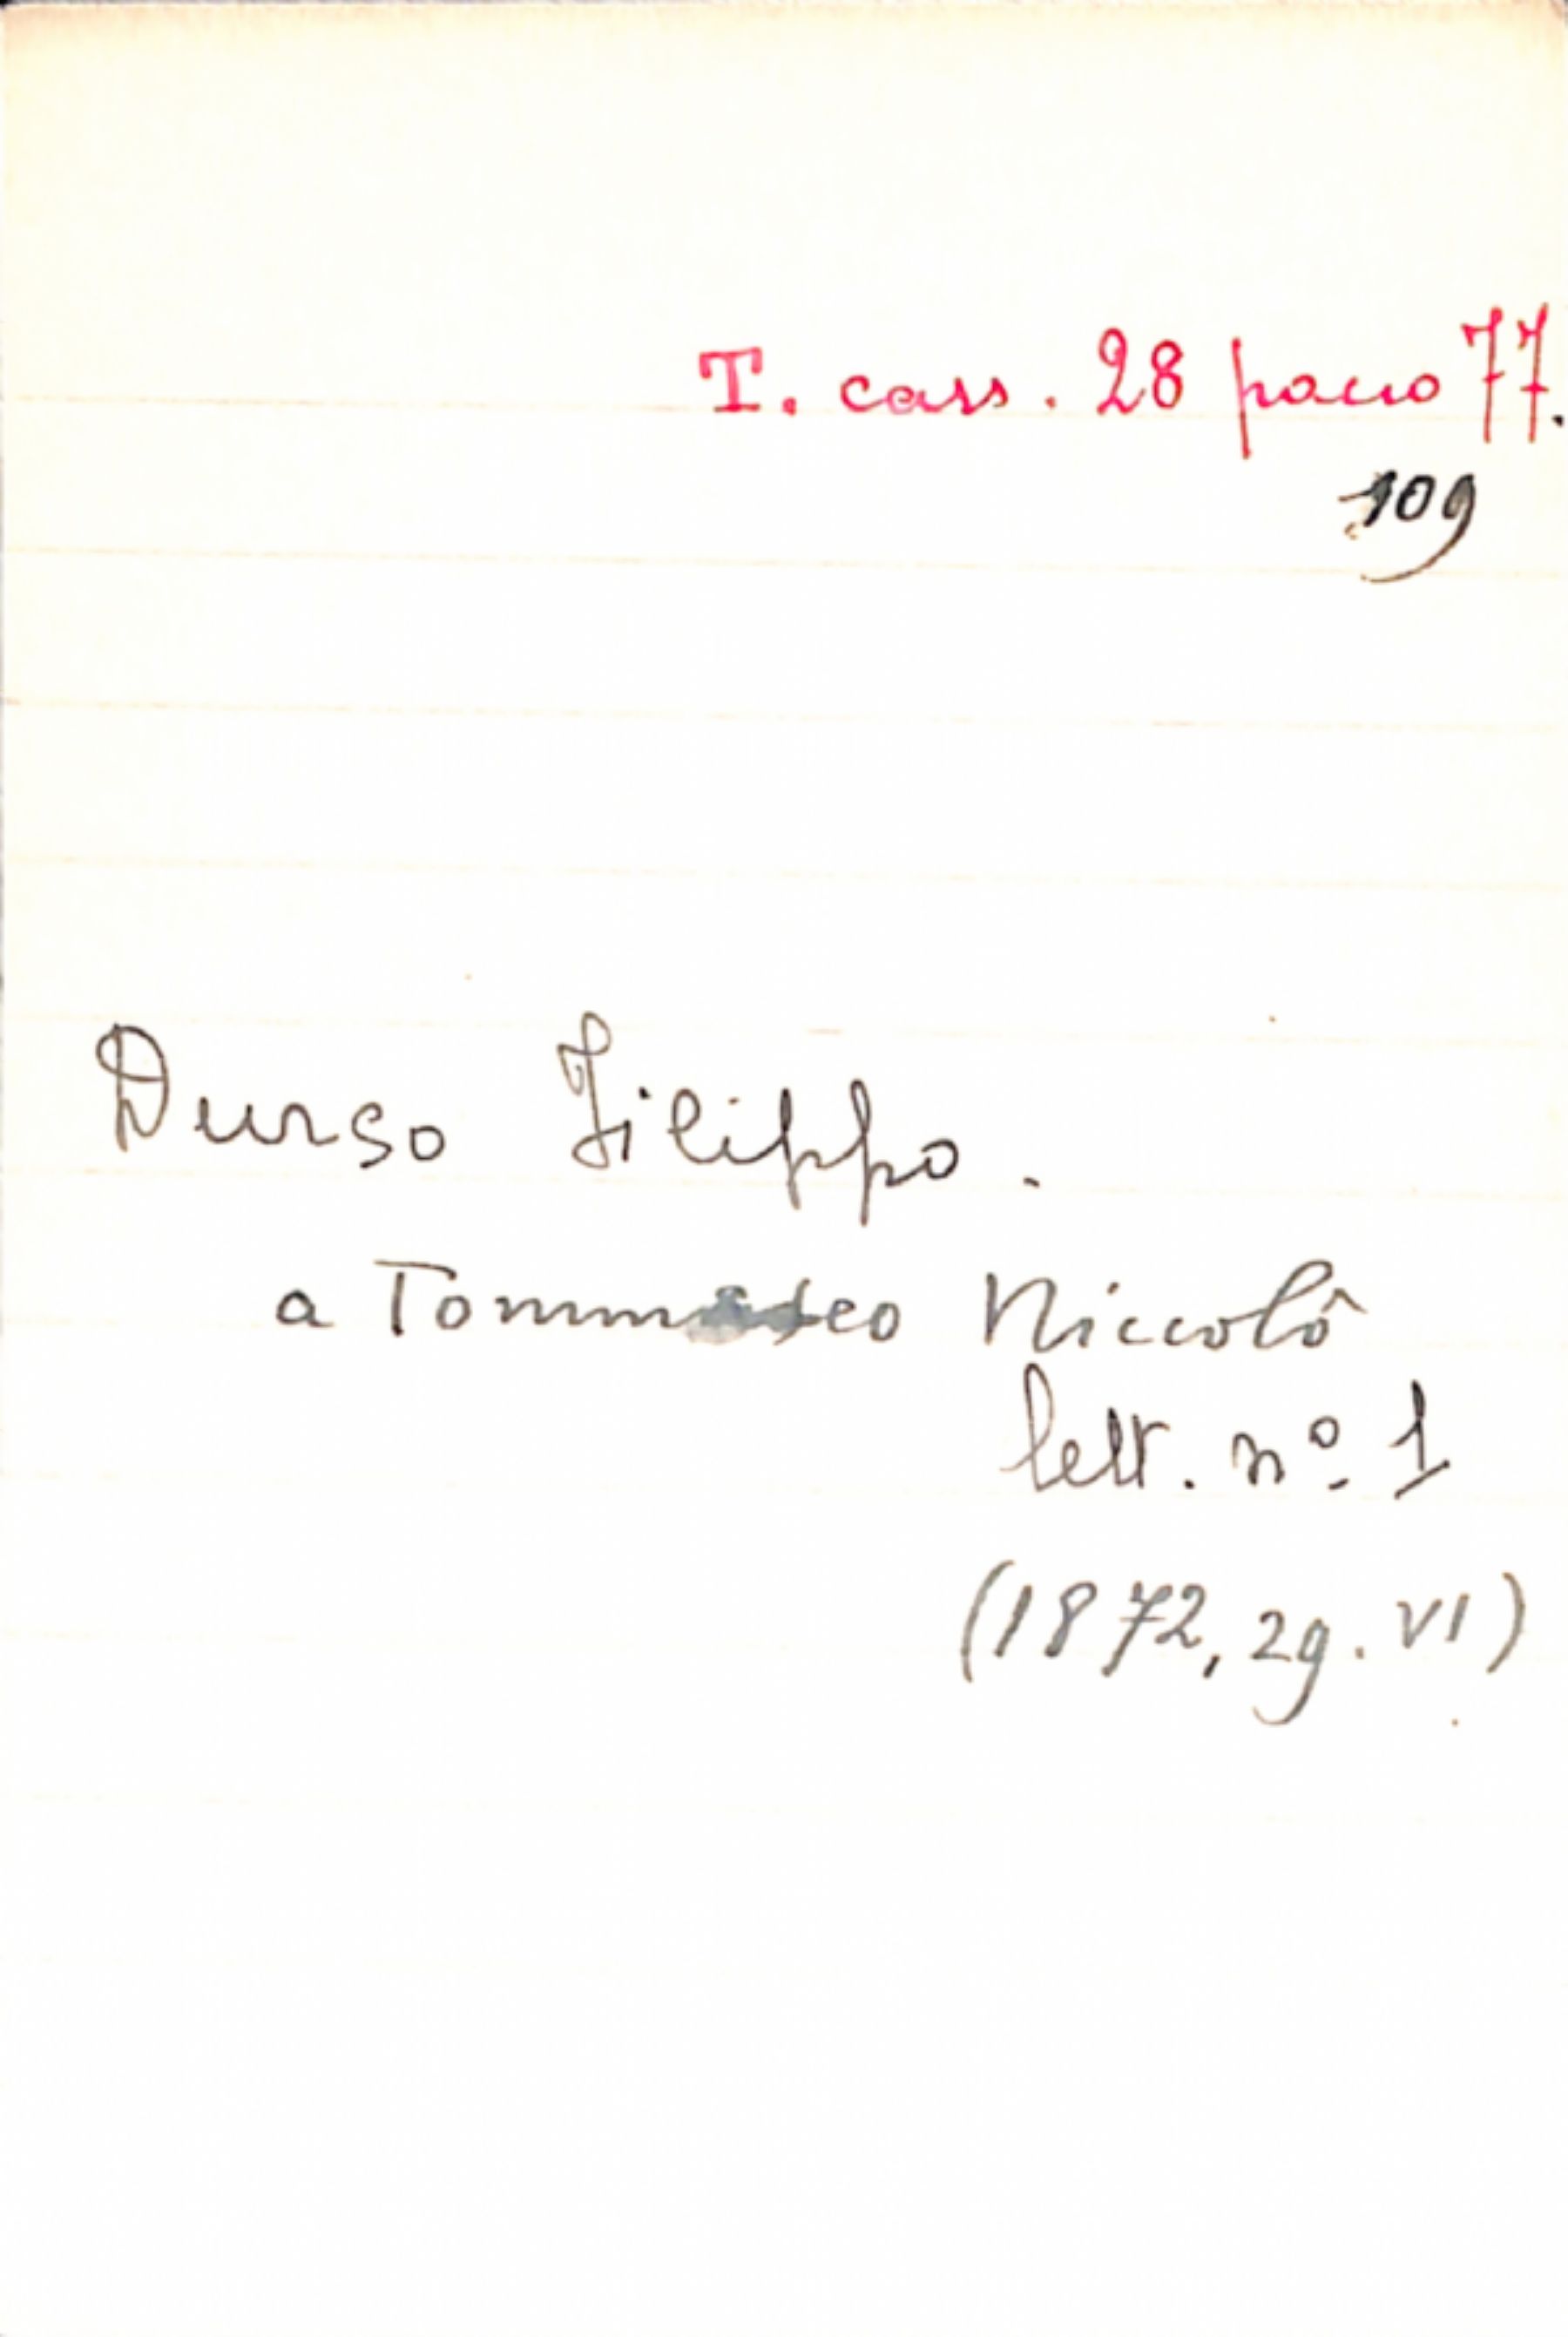 T. cass. 28 pacco 77.
109
Durso Filippo.
a Tommaseo Niccolô
lett. nº 1
(1872, 29. VI)